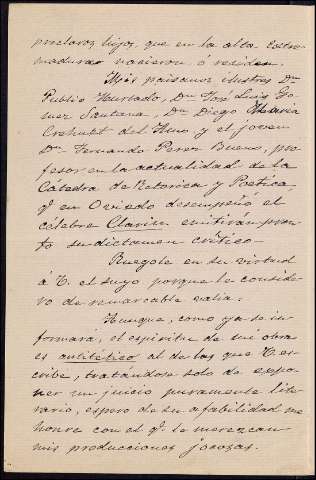 preclaros hijos, que en la alta Extre-
madura nacieron o residen.
Mis paisanos ilustres Dn
Publio Hurtado, Dn José Luis Go-
mez Santana, Dn Diego Maria
Crehuet del Amo y el joven
Dn Fernando Perez Bueno, pro-
fesor en la actualidad de la
Catedra de Retorica y Poetica
qe en Oviedo desempeñó el
célebre Clarin emitirán pron-
to su dictamen crítico.
Ruegole en su virtud
á V. el suyo porque le conside-
ro de remarcable valia.
Aunque, como ya se in-
formará, el espiritu de mi obra
es antitético al de las que V. es-
cribe, tratándose solo de expo-
ner un juicio puramente lite-
rario, espero de su afabilidad me
honre con el qe le merezcan
mis producciones jocozas.